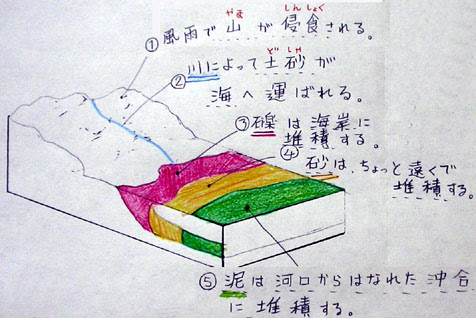 ①風雨で山が侵食される。
やま
しんしょく
②川によって土砂が
どしゃ
海へ運ばれる。
③礫は海岸に
堆積する。
④砂は、ちょっと遠くで
堆積する。
⑤泥は河口からはなれた沖合
に堆積する。